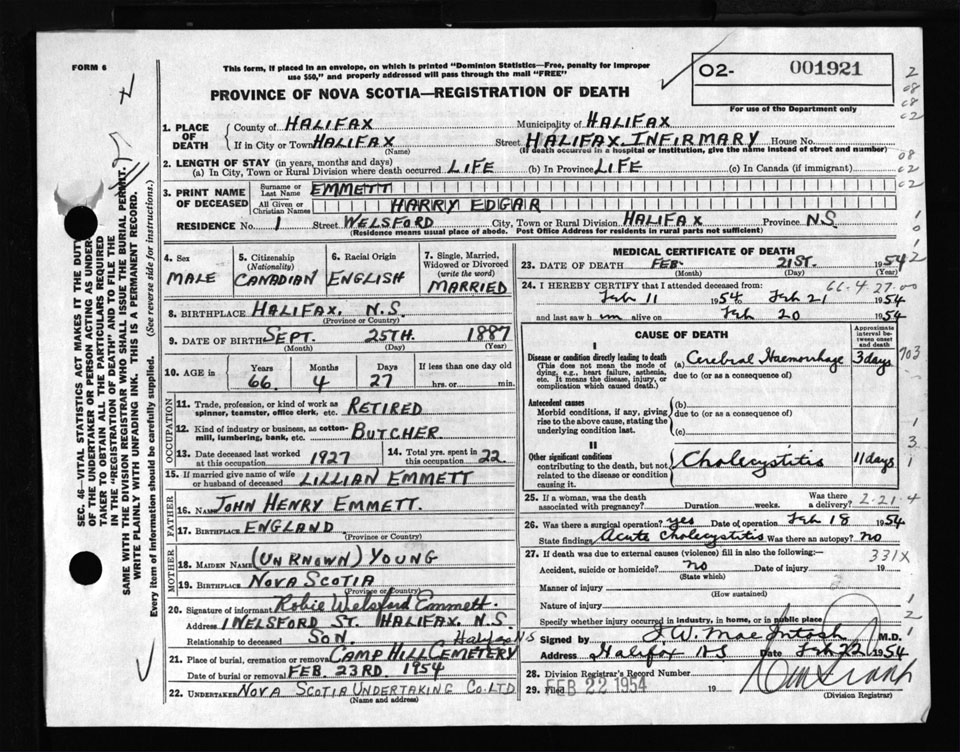 FORM 6
This form, if placed in an envelope, on which is printed "Dominion Statistics—Free, penalty for improper
use $50," and properly addressed will pass through the mail "FREE"
PROVINCE OF NOVA SCOTIA—REGISTRATION OF DEATH
O2- 001921
For use of the Department only
2
08
08
02
08
02
1. PLACE OF DEATH
County of HALIFAX Municipality of HALIFAX
If in City or Town HALIFAX Street HALIFAX INFIRMARY House No.
(Name) (If death occurred in a hospital or institution, give the name instead of street and number)
2. LENGTH OF STAY (in years, months and days)
(a) In City, Town or Rural Division where death occurred LIFE (b) In Province LIFE (c) In Canada (if immigrant)
3. PRINT NAME OF DECEASED
Surname or Last Name EMMETT
All Given or Christian Names HARRY EDGAR
RESIDENCE No. 1 Street WELSFORD City, Town or Rural Division HALIFAX Province N.S.
(Residence means usual place of abode. Post Office Address for residents in rural parts not sufficient)
4. Sex
MALE
5. Citizenship (Nationality)
CANADIAN
6. Racial Origin
ENGLISH
7. Single, Married, Widowed or Divorced (write the word)
MARRIED
8. BIRTHPLACE HALIFAX, N.S.
(Province or Country)
9. DATE OF BIRTH SEPT. 25TH. 1887
(Month) (Day) (Year)
10. AGE in Years Months Days If less than one day old
66. 4 27 hrs. or min.
OCCUPATION
11. Trade, profession, or kind of work as spinner, teamster, office clerk, etc. RETIRED
12. Kind of industry or business, as cotton-mill, lumbering, bank, etc. BUTCHER
13. Date deceased last worked at this occupation 1927
14. Total yrs. spent in this occupation 22
15. If married give name of wife or husband of deceased LILLIAN EMMETT
FATHER
16. Name JOHN HENRY EMMETT.
17. Birthplace ENGLAND
(Province or Country)
MOTHER
18. MAIDEN NAME (UNKNOWN) YOUNG
19. BIRTHPLACE NOVA SCOTIA
(Province or Country)
20. Signature of informant Robie Welsford Emmett.
Address 1 WELSFORD ST. HALIFAX, N.S.
Relationship to deceased SON. Halifax N.S
21. Place of burial, cremation or removal CAMP HILL CEMETERY
Date of burial or removal FEB. 23RD. 1954
22. UNDERTAKER NOVA SCOTIA UNDERTAKING CO. LTD
(Name and address)
MEDICAL CERTIFICATE OF DEATH
23. DATE OF DEATH FEB. 21ST. 1954
(Month) (Day) (Year)
66-4-27-00
24. I HEREBY CERTIFY that I attended deceased from:
Feb 11 1954 to Feb 21 1954
and last saw h im alive on Feb 20 1954
CAUSE OF DEATH
Approximate interval between onset and death
I
Disease or condition directly leading to death
(This does not mean the mode of dying, e.g., heart failure, asthenia, etc. It means the disease, injury, or complication which caused death.)
(a) Cerebral Haemorrhage 3 days
due to (or as a consequence of)
Antecedent causes
Morbid conditions, if any, giving rise to the above cause, stating the underlying condition last.
(b)
due to (or as a consequence of)
(c)
II
Other significant conditions
contributing to the death, but not related to the disease or condition causing it.
Cholecystitis 11 days
25. If a woman, was the death associated with pregnancy? Duration weeks. Was there a delivery?
2-21-4
26. Was there a surgical operation? yes Date of operation Feb 18 1954
State findings Acute Cholecystitis Was there an autopsy? no
27. If death was due to external causes (violence) fill in also the following:—
331X
Accident, suicide or homicide? no Date of injury 19
(State which)
Manner of injury
(How sustained)
Nature of injury
Specify whether injury occurred in industry, in home, or in public place
Signed by J. W. MacIntosh M.D.
Address Halifax N S Date Feb 22 1954
28. Division Registrar's Record Number
29. Filed FEB 22 1954 19
(Division Registrar)
SEC. 46—VITAL STATISTICS ACT MAKES IT THE DUTY
OF THE UNDERTAKER OR PERSON ACTING AS UNDERTAKER
TO OBTAIN ALL THE PARTICULARS REQUIRED
IN THE "REGISTRATION OF DEATH" AND TO FILE THE
SAME WITH THE DIVISION REGISTRAR WHO SHALL ISSUE THE BURIAL PERMIT.
WRITE PLAINLY WITH UNFADING INK. THIS IS A PERMANENT RECORD.
Every item of information should be carefully supplied. (See reverse side for instructions.)